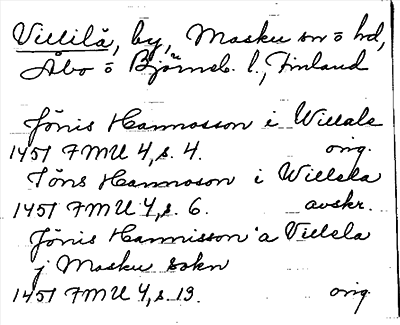 Villilä, by, Masku sn o hd,
Åbo o Björneb. l., Finland
Jönis Hannosson i Willale
1451 FMU 4, s. 4. orig.
Jöns Hannoson i Willela
1451 FMU 4, s. 6. avskr.
Jönis Hannisson a Villela
j Masku sokn
1451 FMU 4, s. 13. orig.